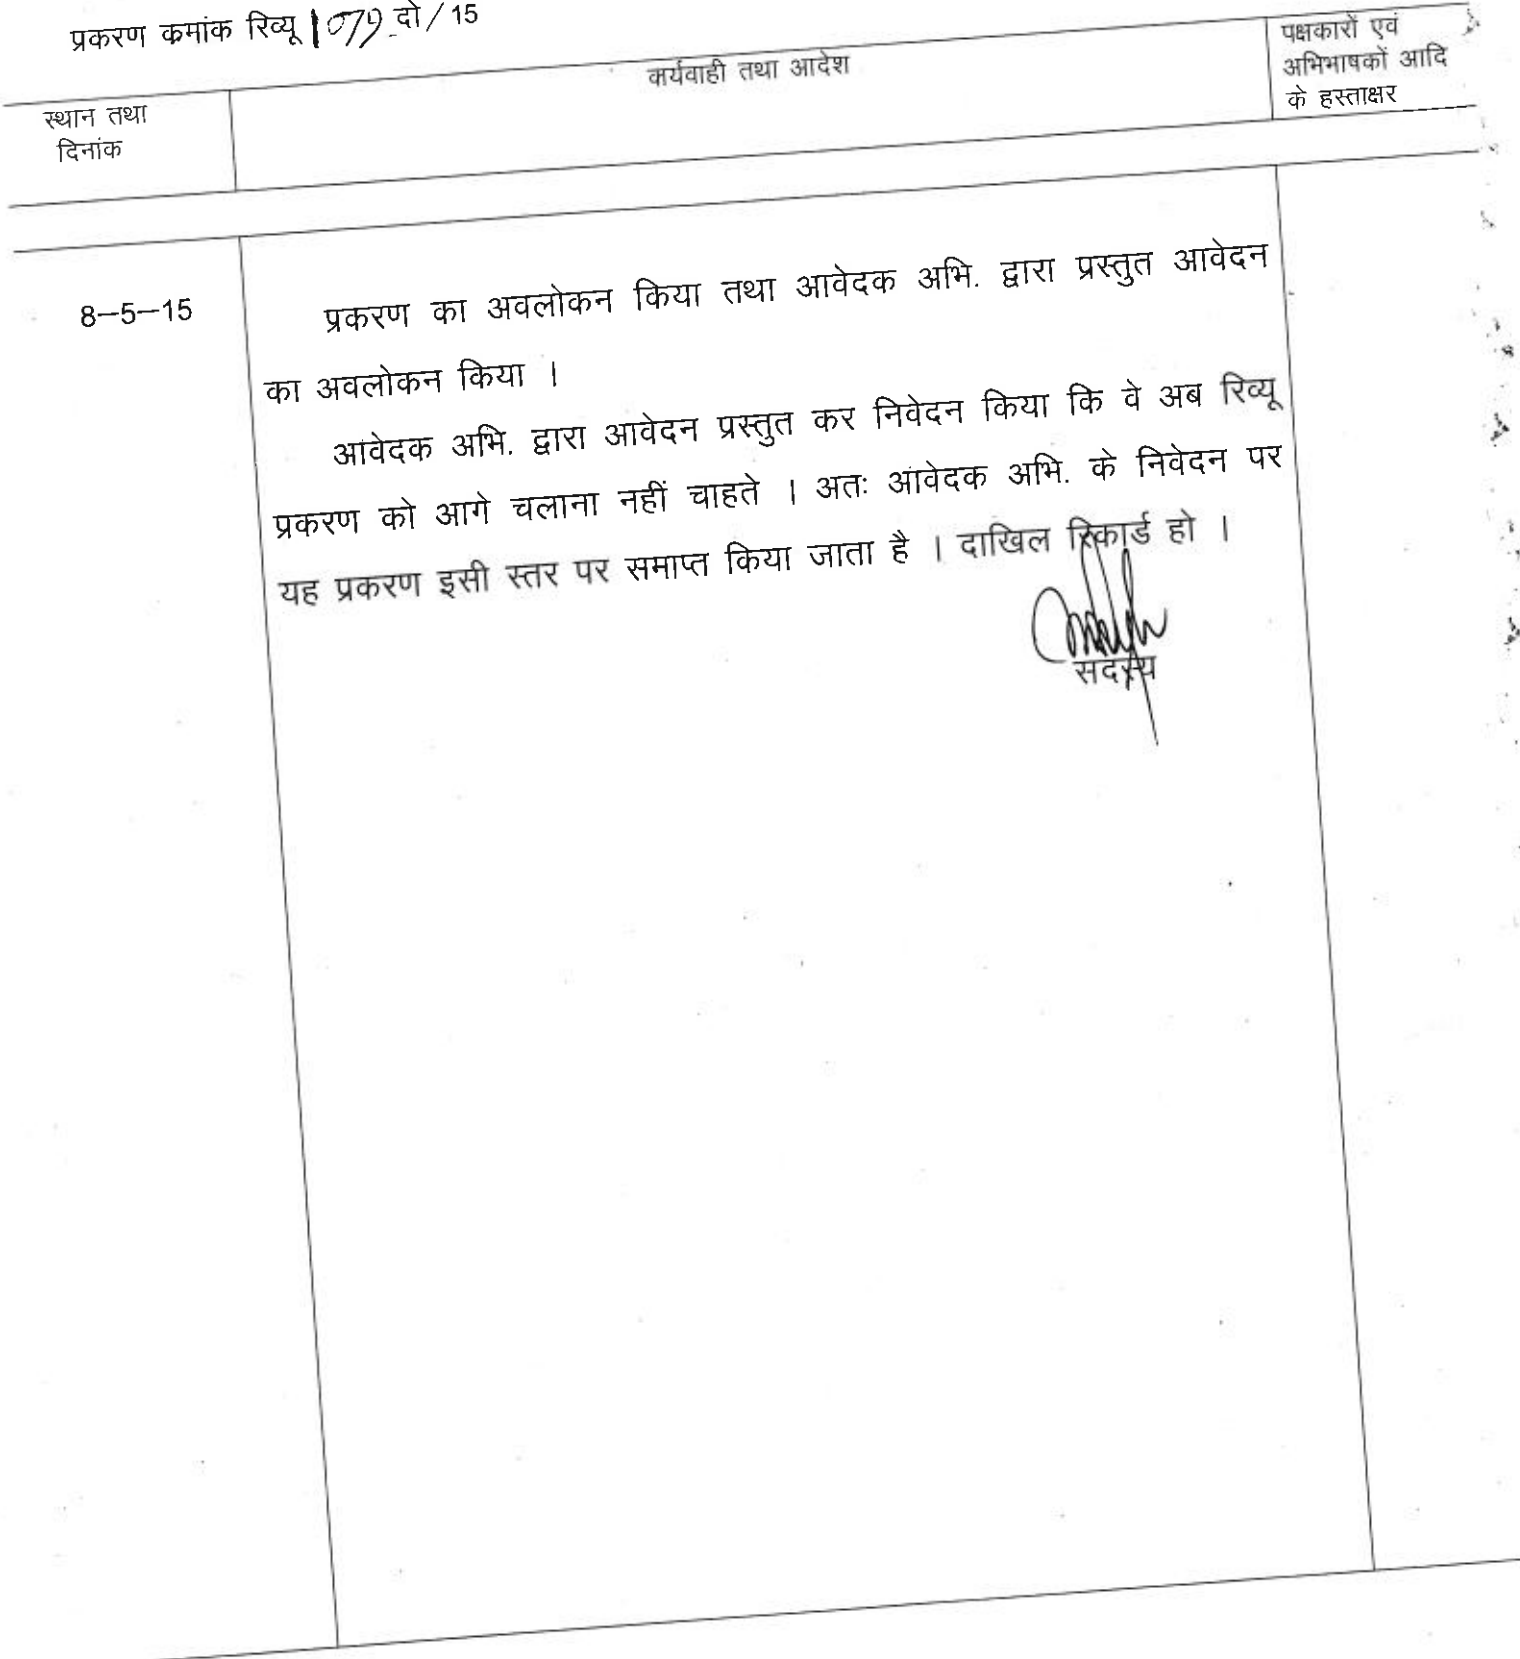 प्रकरण कमांक रिव्यू 1079 दो / 15
स्थान तथा
दिनांक
कार्यवाही तथा आदेश
पक्षकारों एवं
अभिभाषकों आदि
के हस्ताक्षर
8–5–15
प्रकरण का अवलोकन किया तथा आवेदक अभि. द्वारा प्रस्तुत आवेदन
का अवलोकन किया ।
आवेदक अभि. द्वारा आवेदन प्रस्तुत कर निवेदन किया कि वे अब रिव्यू
प्रकरण को आगे चलाना नहीं चाहते । अतः आवेदक अभि. के निवेदन पर
यह प्रकरण इसी स्तर पर समाप्त किया जाता है । दाखिल रिकार्ड हो ।
सदस्य